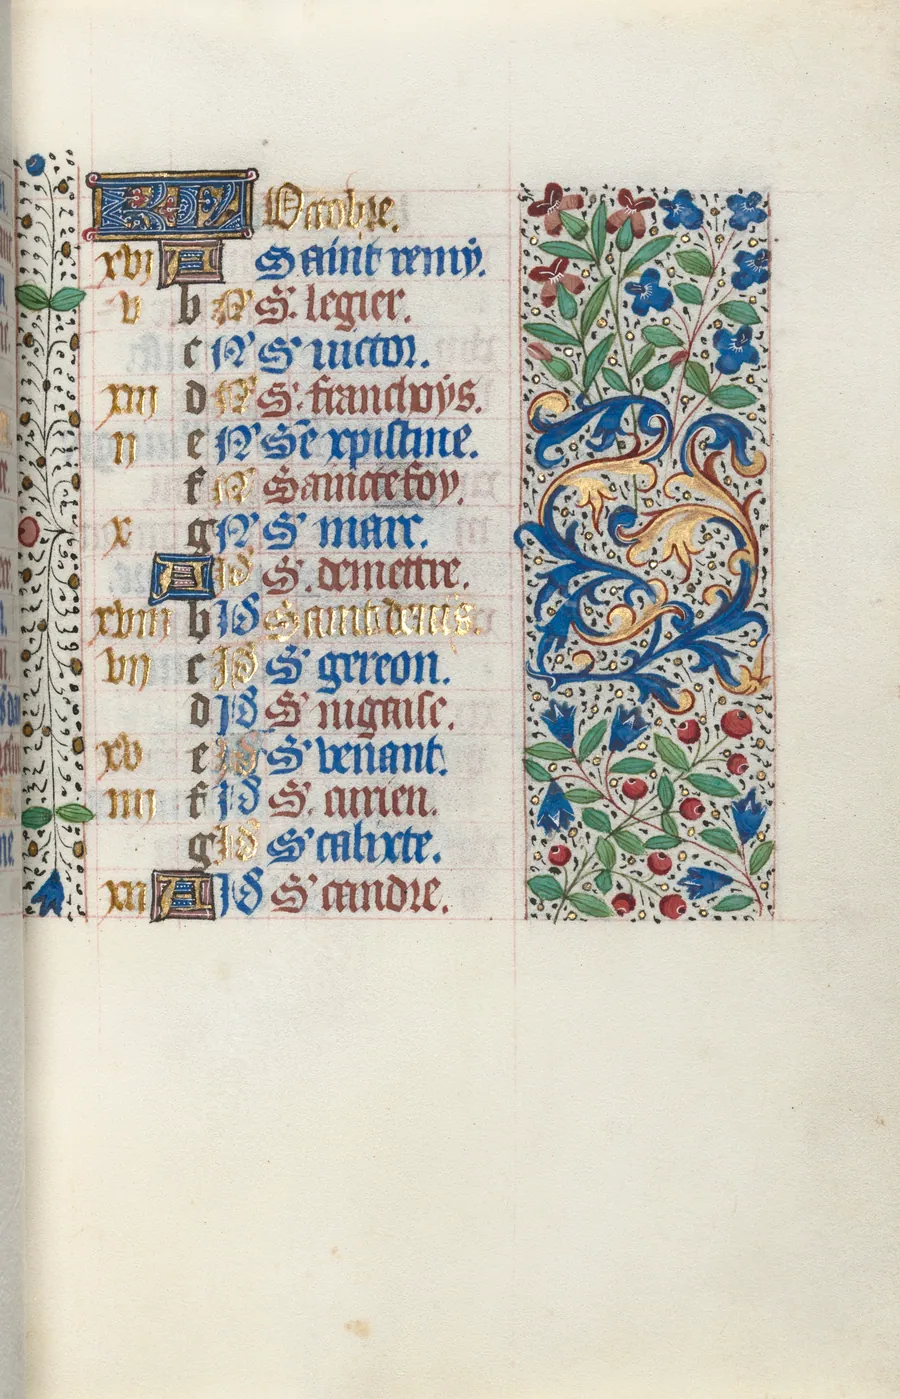 KL Octobre.
xvj A Saint remy.
v b N S. legier.
c N S' victor.
xiij d N S. franchoys.
ij e N Sē xpistine.
f N Saincte foy.
x g N S' marc.
A Id S. demettre.
xviij b Id Saint denis.
vij c Id S' gereon.
d Id S' nigaise.
xv e Id S' venant.
iiij f Id S. aurien.
g Id S' calixte.
xij A Id S' candre.